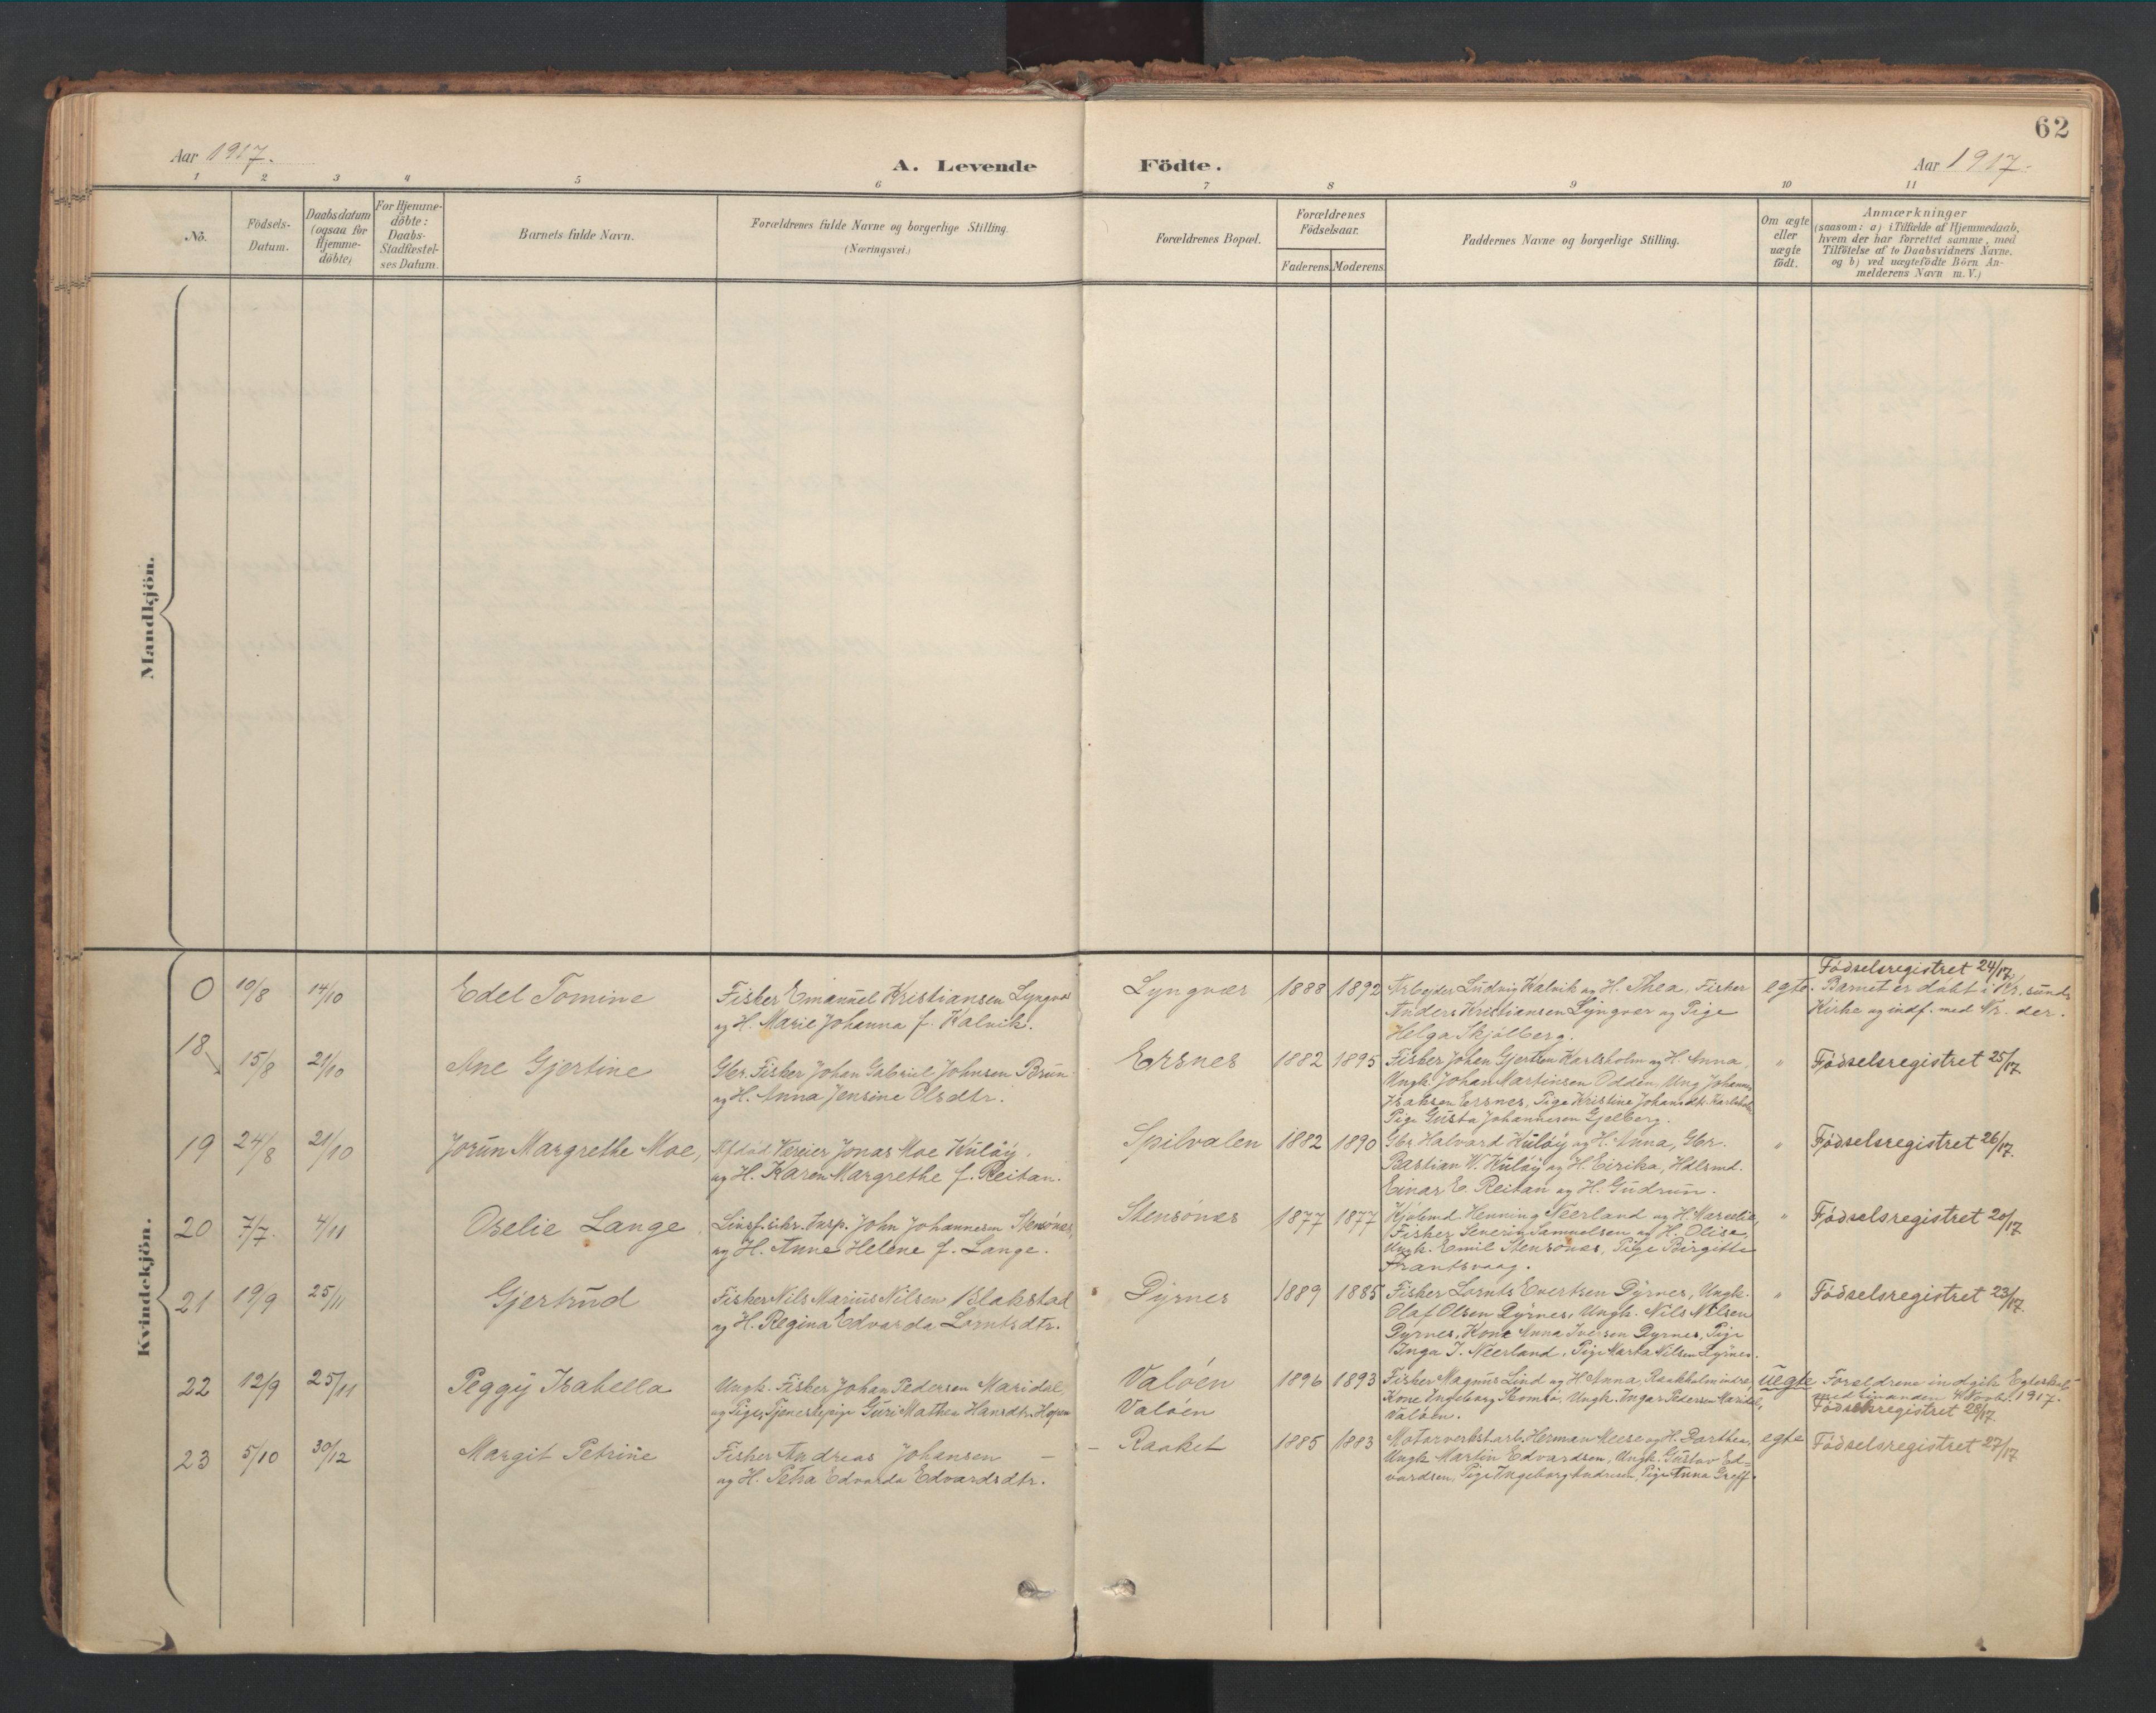 62
Aar 1917.
A. Levende Födte.
Aar 1917.
1 2 3 4 5 6 7 8 9 10 11
No.
Födsels-
Datum.
Daabsdatum
(ogsaa for
Hjemme-
döbte)
For Hjemme-
döbte:
Daabs-
Stadfæstel-
ses Datum.
Barnets fulde Navn.
Forældrenes fulde Navne og borgerlige Stilling.
(Næringsvei.)
Forældrenes Bopæl.
Forældrenes
Födselsaar.
Faderens. Moderens.
Faddernes Navne og borgerlige Stilling.
Om ægte
eller
uægte
födt.
Anmærkninger
(saasom: a) i Tilfælde af Hjemmedaab,
hvem der har forrettet samme, med
Tilföielse af to Daabsvidners Navne.
og b) ved uægtefödte Börn An-
melderens Navn m. V.)
Mandkjön.
Kvindekjön.
0 10/8 14/10 Edel Tomine
Fisker Emanuel Kristiansen Lyngvær
og H. Marie Johanna f. Kalvik.
Lyngvær 1888 1892
Arbeider Ludvig Kalvik og H. Thea, Fisker
Anders Kristiansen Lyngvær og Pige
Helga Skjölberg.
egte.
Födselsregistret 24/17.
Barnet er döbt i Kr.sunds
Kirke og indf. med Nr. der.
18 15/8 21/10 Ane Gjertine
Gbr. Fisker Johan Gabriel Johnsen Brun
og H. Anna Jensine Olsdtr.
Ersnes 1882 1895
Fisker Johan Gjertsen Karlsholm og H. Anna,
Ungk. Johan Martinsen Odden, Ung Johannes
Isaksen Ersnes, Pige Kristine Johansdtr. Karlsholm
Pige Gusta Johannesen Gjelberg.
" Födselsregistret 25/17
19 24/8 21/10 Jorun Margrethe Moe,
Afdöd Væreier Jonas Moe Kulöy,
og H. Karen Margrethe f. Reitan.
Spilvalen 1882 1890
Gbr. Halvard Kulöy og H. Anna, Gbr.
Bastian W. Kulöy og H. Eirika, Hdlsmd.
Einar E. Reitan og H. Gudrun.
" Födselsregistret 26/17.
20 7/7. 4/11 Oselie Lange.
John Johannesen Stensönes,
og H. Anne Helene f. Lange.
Stensönes 1877 1877
Kjöbmd Henning Neerland og H.
Fisker Severin Samuelsen og H. Olise,
Ungk. Emil Stensönes, Pige Birgitte
Frantsvaag.
" Födselsregistret 20/17
21 19/9 25/11 Gjertrud
Fisker Nils Marius Nilsen Blakstad
og H. Regina Edvarda Lorntsdtr.
Dyrnes 1889 1885
Fisker Lornts Evertsen Dyrnes, Ungk.
Olaf Olsen Dyrnes, Ungk. Nils Nilsen
Dyrnes, Kone Anna Iversen Dyrnes, Pige
Inga J. Neerland, Pige Marta Nilsen Dyrnes.
" Födselsregistret 23/17.
22 12/9 25/11 Peggy Isabella
Ungk. Fisker Johan Pedersen Maridal,
og Pige, Tjenestepige Guri Mathea Hansdtr. Hopen
Valöen
Valöen
1896 1893
Fisker Magnus Lind og H. Anna, Raakholmindre,
Kone Ingeborg Skomsö, Ungk. Ingar Pedersen Maridal,
Valöen.
uegte
Foreldrene indgik Egteskab
med hinanden 4 Novbr. 1917.
Födselsregistret 28/17.
23 5/10 30/12 Margit Petrine
Fisker Andreas Johansen
og H. Petra Edvarda Edvardsdtr.
Raaket 1885 1883
Motorverkstarb. Herman Meese og H. Dorthea,
Ungk. Martin Edvardsen, Ungk. Gustav Ed-
vardsen, Pige Ingeborg Andresen, Pige Anna Greff.
egte Födselsregistret 27/17